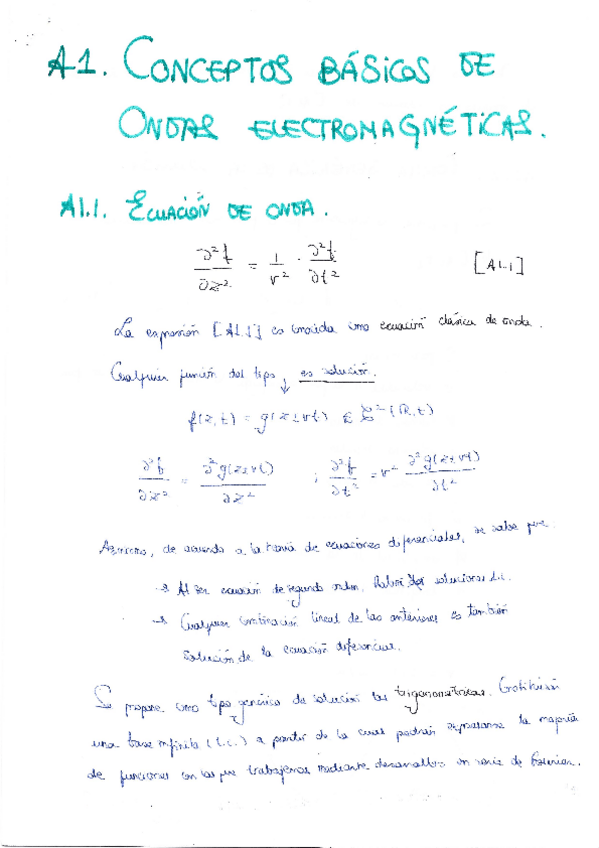 A1. CONCEPTOS BÁSICOS DE
ONDAS ELECTROMAGNÉTICAS.
A1.1. ECUACIÓN DE ONDA.
∂²f/∂z² = 1/v² · ∂²f/∂t² [A1.1]
La expresión [A1.1] es conocida como ecuación clásica de onda.
Cualquier función del tipo ↓ es solución.
f(z,t) = g(z±vt) ∈ ²(ℝ,t)
∂²f/∂z² = ∂²g(z±vt)/∂z² ; ∂²f/∂t² = v² ∂²g(z±vt)/∂t²
Asimismo, de acuerdo a la teoría de ecuaciones diferenciales, se sabe que:
→ Al ser ecuación de segundo orden. Habrá soluciones l.i.
→ Cualquier combinación lineal de las anteriores es también
solución de la ecuación diferencial.
Se propone como tipo genérico de solución las trigonométricas. Constituirán
una base infinita (l.i.) a partir de la cual podrán expresarse la mayoría
de funciones con las que trabajemos mediante desarrollos en serie de Fourier.